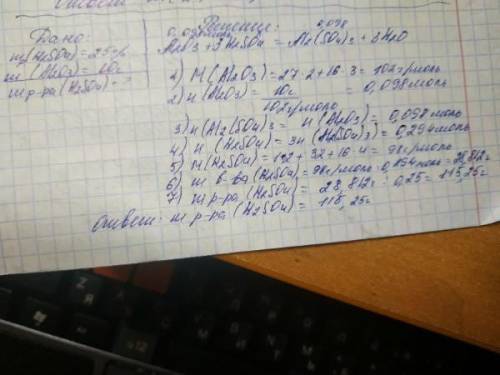 Дано:
ω(H2SO4)=25%
m (Al2O3) = 10г
m р-ра (H2SO4) - ?
Решение:
0,098
Al2O3 + 3H2SO4 = Al2(SO4)3 + 3H2O
1) M(Al2O3) = 27·2+16·3 = 102 г/моль
2) n(Al2O3) = 10г / 102 г/моль = 0,098 моль
3) n(Al2(SO4)3 = n(Al2O3) = 0,098 моль
4) n(H2SO4) = 3n(H2SO4)3) = 0,294 моль
5) M(H2SO4) = 1·2 + 32 + 16·4 = 98 г/моль
6) m в-ва (H2SO4) = 98 г/моль · 0,294 моль = 28,812г
7) m р-ра (H2SO4) = 28,812 : 0,25 = 115,25г
Ответ: m р-ра (H2SO4) = 115,25г